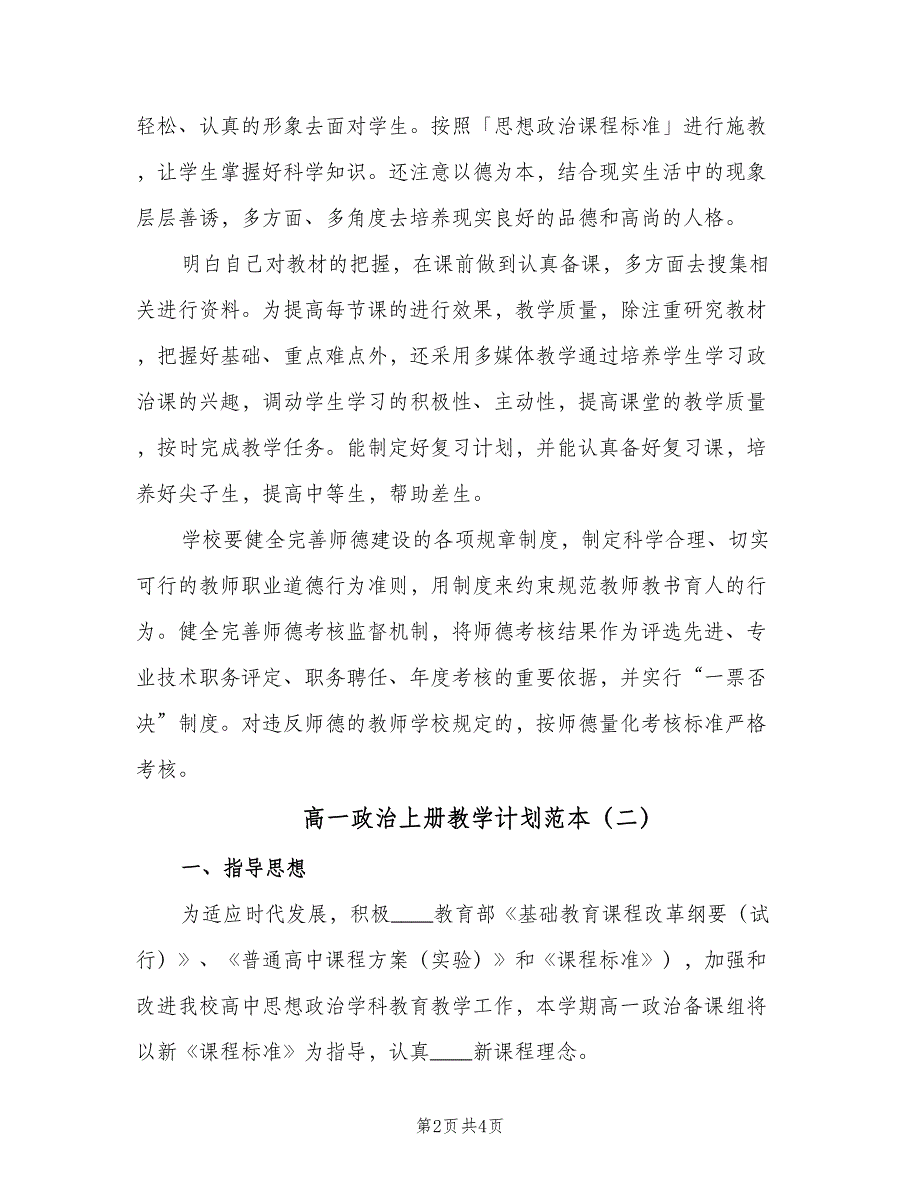 轻松、认真的形象去面对学生。按照「思想政治课程标准」进行施教
，让学生掌握好科学知识。还注意以德为本，结合现实生活中的现象
层层善诱，多方面、多角度去培养现实良好的品德和高尚的人格。
明白自己对教材的把握，在课前做到认真备课，多方面去搜集相
关进行资料。为提高每节课的进行效果，教学质量，除注重研究教材
，把握好基础、重点难点外，还采用多媒体教学通过培养学生学习政
治课的兴趣，调动学生学习的积极性、主动性，提高课堂的教学质量
，按时完成教学任务。能制定好复习计划，并能认真备好复习课，培
养好尖子生，提高中等生，帮助差生。
学校要健全完善师德建设的各项规章制度，制定科学合理、切实
可行的教师职业道德行为准则，用制度来约束规范教师教书育人的行
为。健全完善师德考核监督机制，将师德考核结果作为评选先进、专
业技术职务评定、职务聘任、年度考核的重要依据，并实行“一票否
决”制度。对违反师德的教师学校规定的，按师德量化考核标准严格
考核。
高一政治上册教学计划范本（二）
一、指导思想
为适应时代发展，积极____教育部《基础教育课程改革纲要（试
行）》、《普通高中课程方案（实验）》和《课程标准》），加强和
改进我校高中思想政治学科教育教学工作，本学期高一政治备课组将
以新《课程标准》为指导，认真____新课程理念。
第2页共4页